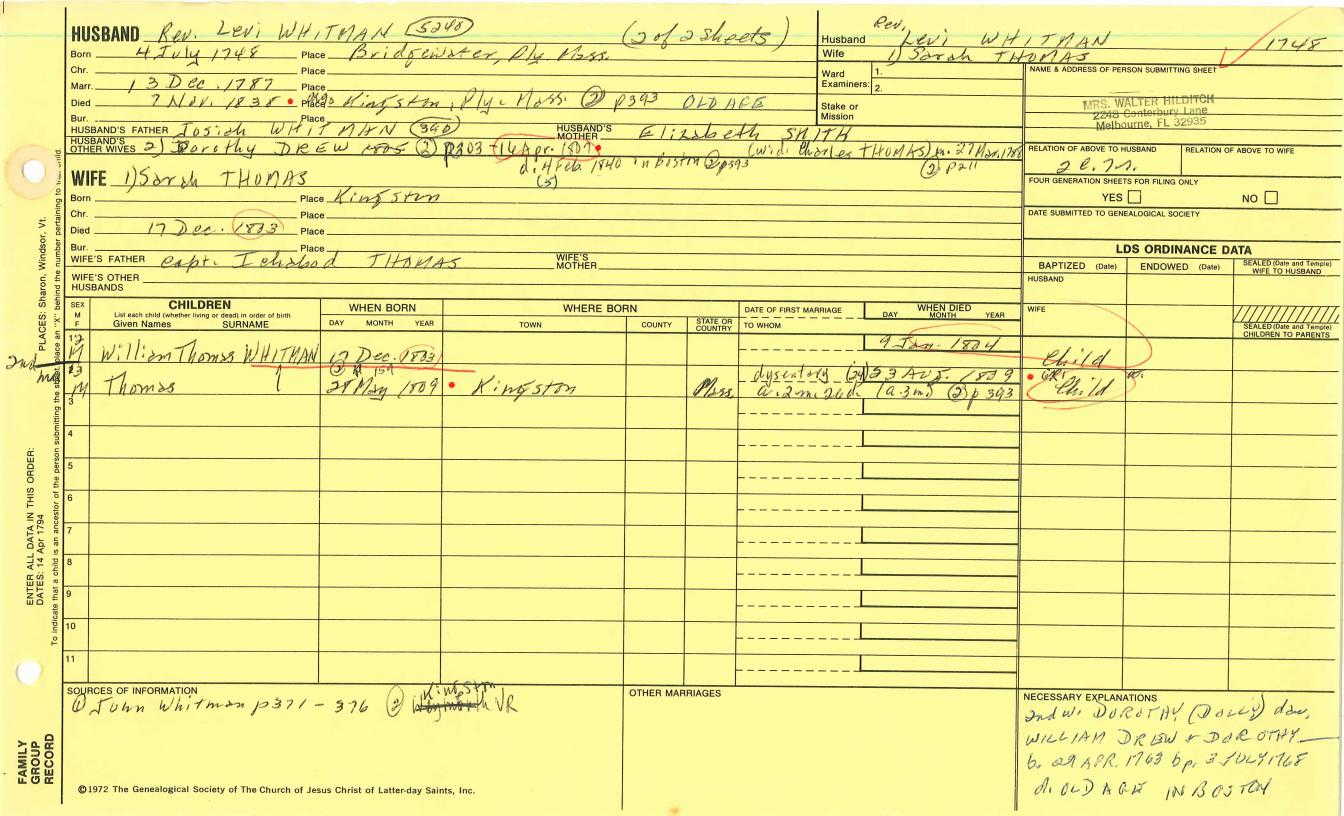 HUSBAND Rev. Levi WHITMAN (5240) (2 of 2 sheets)
Born 4 July 1748 Place Bridgewater, Ply. Mass.
Chr. Place
Marr. 13 Dec. 1787 Place
Died 7 Nov. 1838 Place Kingston, Ply. Mass. ② p393 OLD AGE
Bur. Place
HUSBAND'S FATHER Josiah WHITMAN (340) HUSBAND'S MOTHER Elizabeth SMITH
HUSBAND'S OTHER WIVES 2) Dorothy DREW 1805 ② p303 14 Apr. 1807 (wid. Charles THOMAS) m. 27 Mar. 1788
d. 4 Feb. 1840 in Boston ② p393 ② p211
(5)
WIFE 1) Sarah THOMAS
Born Place Kingston
Chr. Place
Died 17 Dec. 1803 Place
Bur. Place
WIFE'S FATHER Capt. Ichabod THOMAS WIFE'S MOTHER
WIFE'S OTHER HUSBANDS
Rev.
Husband Levi WHITMAN 1748
Wife 1) Sarah THOMAS
Ward Examiners: 1.
2.
Stake or Mission
NAME & ADDRESS OF PERSON SUBMITTING SHEET
MRS. WALTER HILDITCH
2248 Canterbury Lane
Melbourne, FL 32935
RELATION OF ABOVE TO HUSBAND RELATION OF ABOVE TO WIFE
FOUR GENERATION SHEETS FOR FILING ONLY
YES NO
DATE SUBMITTED TO GENEALOGICAL SOCIETY
LDS ORDINANCE DATA
BAPTIZED (Date) ENDOWED (Date) SEALED (Date and Temple) WIFE TO HUSBAND
HUSBAND
WIFE
SEALED (Date and Temple) CHILDREN TO PARENTS
SEX M F CHILDREN WHEN BORN WHERE BORN DATE OF FIRST MARRIAGE WHEN DIED
List each child (whether living or dead) in order of birth
Given Names SURNAME DAY MONTH YEAR TOWN COUNTY STATE OR COUNTRY TO WHOM DAY MONTH YEAR
12 M William Thomas WHITMAN 17 Dec. 1803 9 Jan. 1804 Child
2nd
13 ② p 159 dysentary (24) 23 Aug. 1809
M Thomas 28 May 1809 Kingston Mass. a. 2 m. 26 d. (a. 3 m) ② p 393 Child
3
4
5
6
7
8
9
10
11
SOURCES OF INFORMATION
① John Whitman p371 - 376 ② Kingston VR
OTHER MARRIAGES
NECESSARY EXPLANATIONS
2nd w. DOROTHY (DOLLY) dau.
WILLIAM DREW & DOROTHY
b. 29 APR. 1763 bp. 3 JULY 1768
d. OLD AGE IN BOSTON
©1972 The Genealogical Society of The Church of Jesus Christ of Latter-day Saints, Inc.
FAMILY GROUP RECORD
ENTER ALL DATA IN THIS ORDER:
DATES: 14 Apr 1794 PLACES: Sharon, Windsor, Vt.
To indicate that a child is an ancestor of the person submitting the sheet, place an "X" behind the number pertaining to that child.